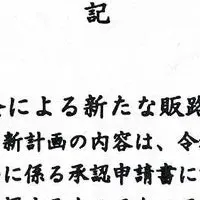 記
による新たな販路
新計画の内容は、令
に係る承認申請書に